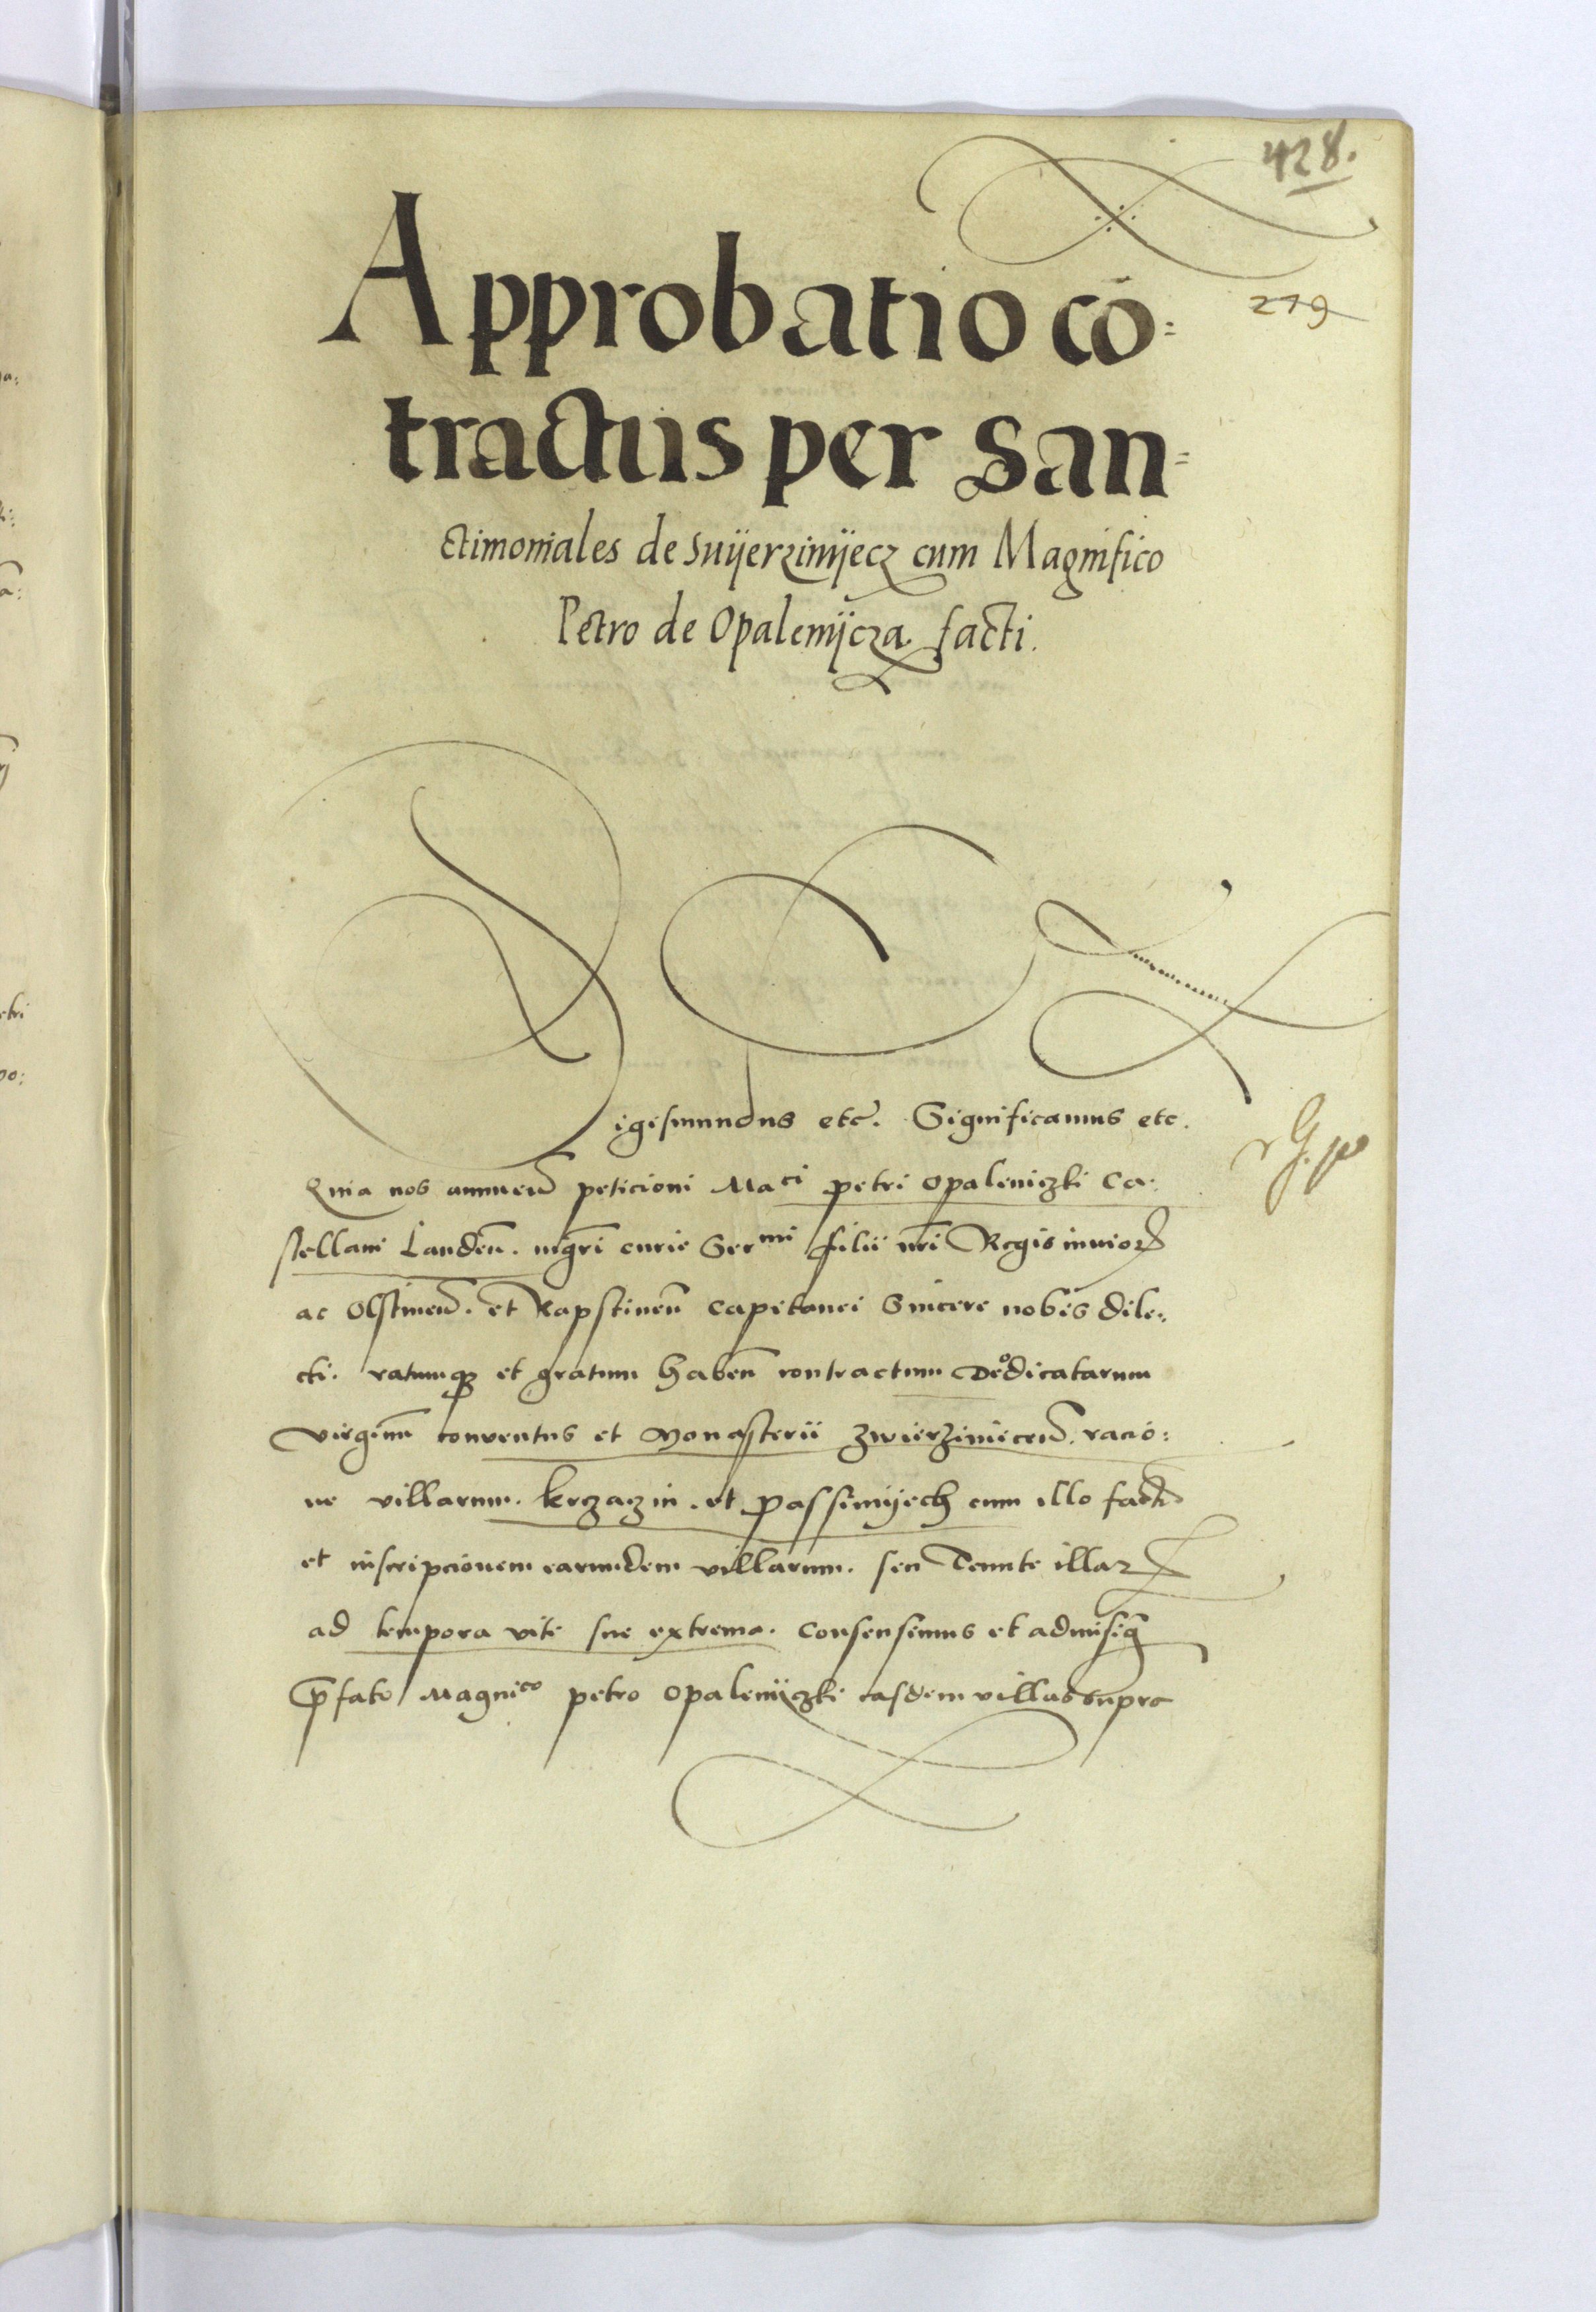 428.
Approbatio cō=
219
tractus per san=
ctimoniales de Swÿerzinÿecz cum Magnifico
Petro de Opalenÿcza. facti.
Sigismundus etc. Significamus etc.
Quia nos annuen̄ peticioni Maci petri Opaleniczki Ca:
stellani Landen̄. mgr̄i curie Sermi filii nr̄i Regis iunior
ac Olstinen̄. et Kapstinen̄ capitanei Sincere nobis dile:
cti. ratumq et gratum haben̄ contractum Deodicatarum
virginū conventus et Monasterii Zwierziniecen̄. racio:
ne villarum. krczaczin. et passinÿech cum illo factū
et inscripcionem earundem villarum. seu Tenute illar
ad tempora vite sue extrema. Consensimus et admisimꝰ
p̄fato Magnico petro Opalenÿczki easdem villas supra